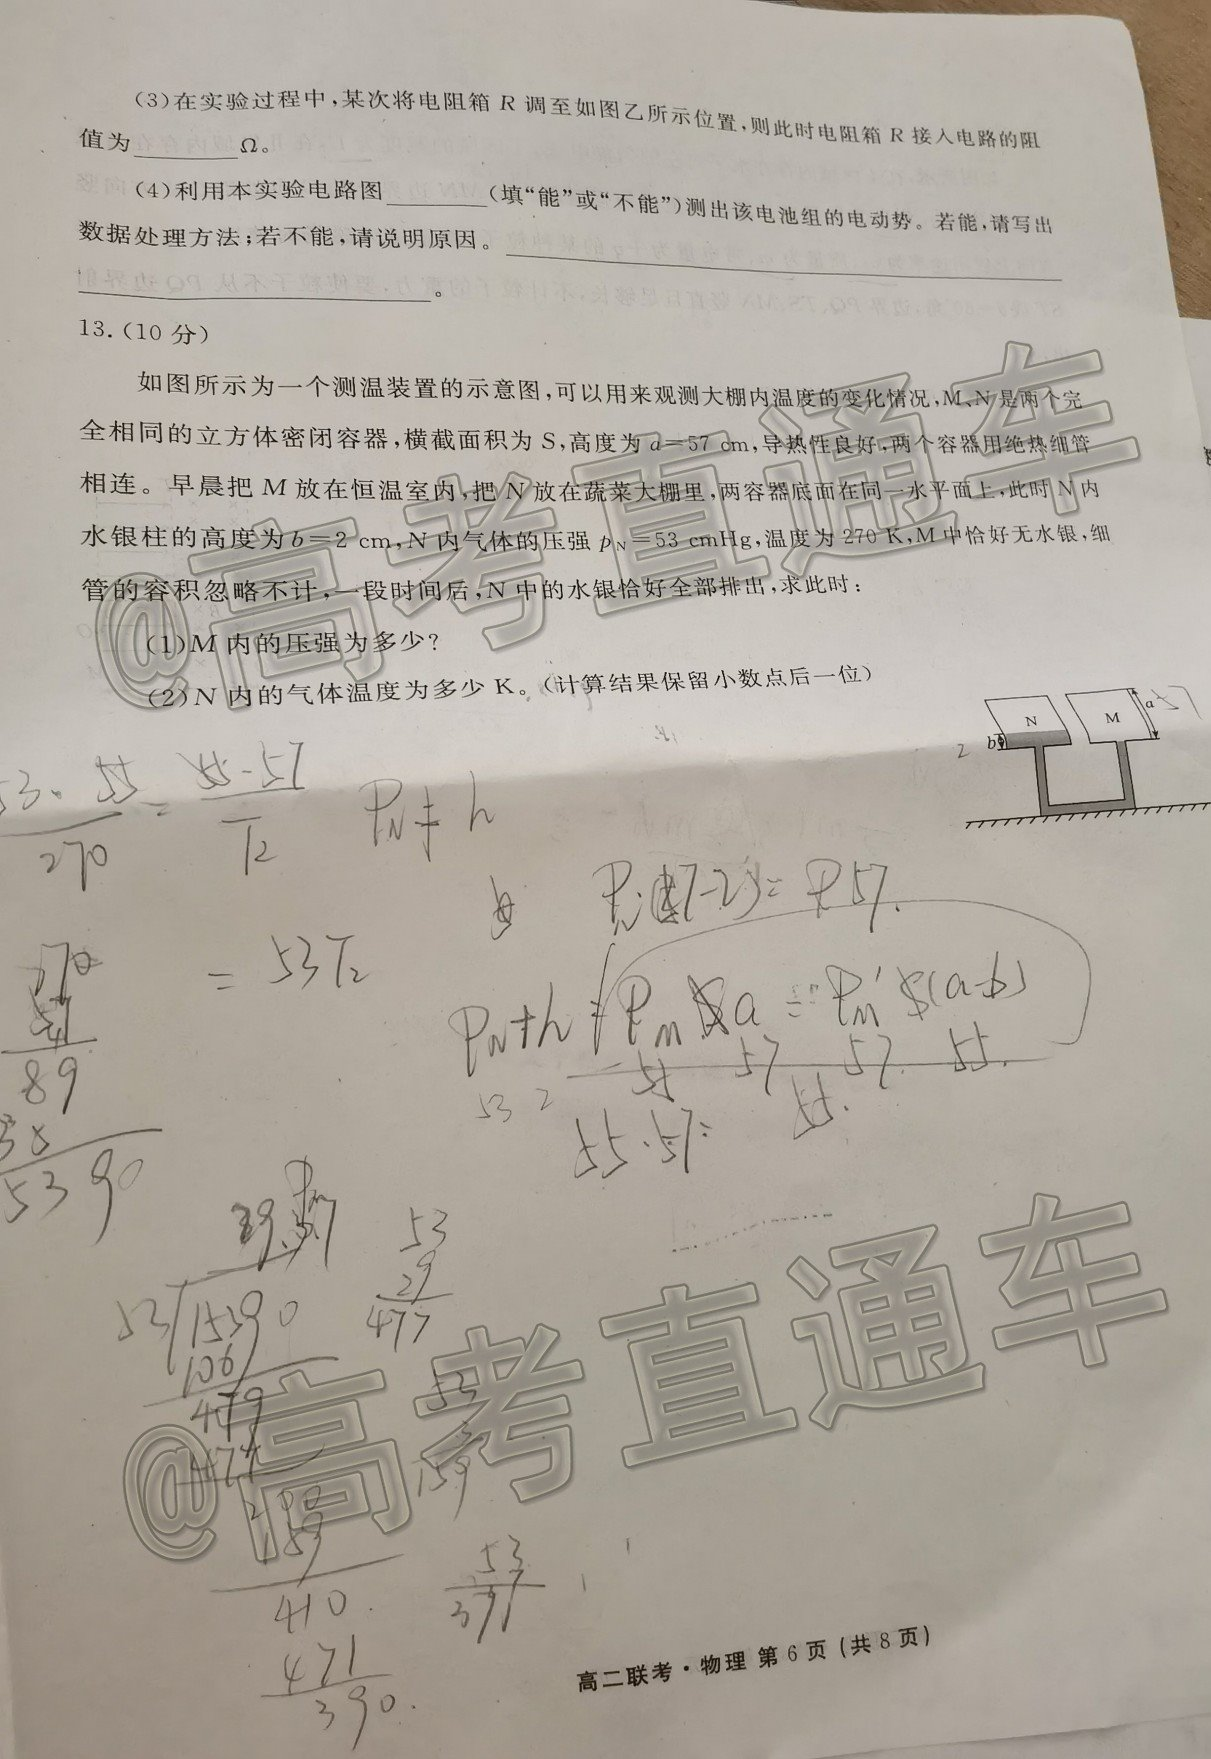 (3)在实验过程中,某次将电阻箱 R 调至如图乙所示位置,则此时电阻箱 R 接入电路的阻
值为________Ω。
(4)利用本实验电路图________(填“能”或“不能”)测出该电池组的电动势。若能,请写出
数据处理方法;若不能,请说明原因。________
________。
13.(10 分)
如图所示为一个测温装置的示意图,可以用来观测大棚内温度的变化情况,M、N 是两个完
全相同的立方体密闭容器,横截面积为 S,高度为 a=57 cm,导热性良好,两个容器用绝热细管
相连。早晨把 M 放在恒温室内,把 N 放在蔬菜大棚里,两容器底面在同一水平面上,此时 N 内
水银柱的高度为 b=2 cm,N 内气体的压强 pN=53 cmHg,温度为 270 K,M 中恰好无水银,细
管的容积忽略不计,一段时间后,N 中的水银恰好全部排出,求此时:
(1)M 内的压强为多少?
(2)N 内的气体温度为多少 K。(计算结果保留小数点后一位)
N M a 57
2 b
53·55/270 = 55·57/T2
PN h
= 53T2
PN+h = PM S a = PM' S(a-b)
53 2 55 57 57 55
55·57=
89
5390
53
29
477
53
15390
106
479
477
159
53
371
410
471
390
@高考直通车
@高考直通车
高二联考·物理 第 6 页 (共 8 页)